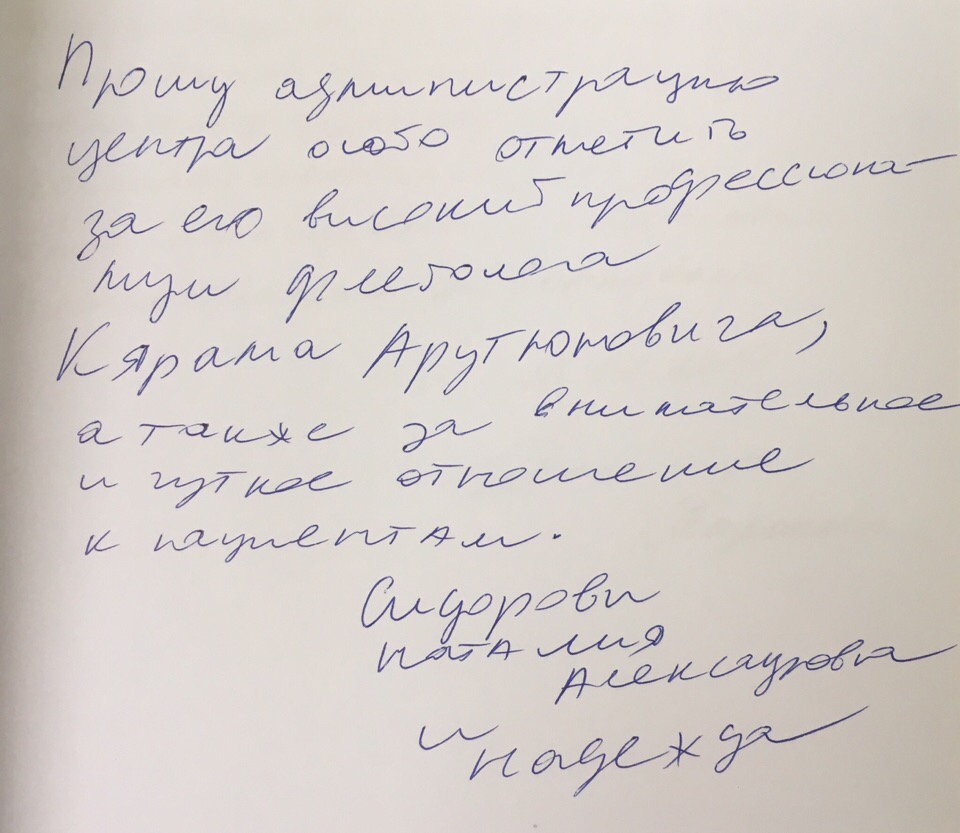 Прошу администрацию
центра особо отметить
за его високий профессиона-
лизм флеболога
Карама Арутюновича,
а также за внимательное
и чуткое отношение
к пациентам.
Сидорови
Наталия
Александровна
и Надежда